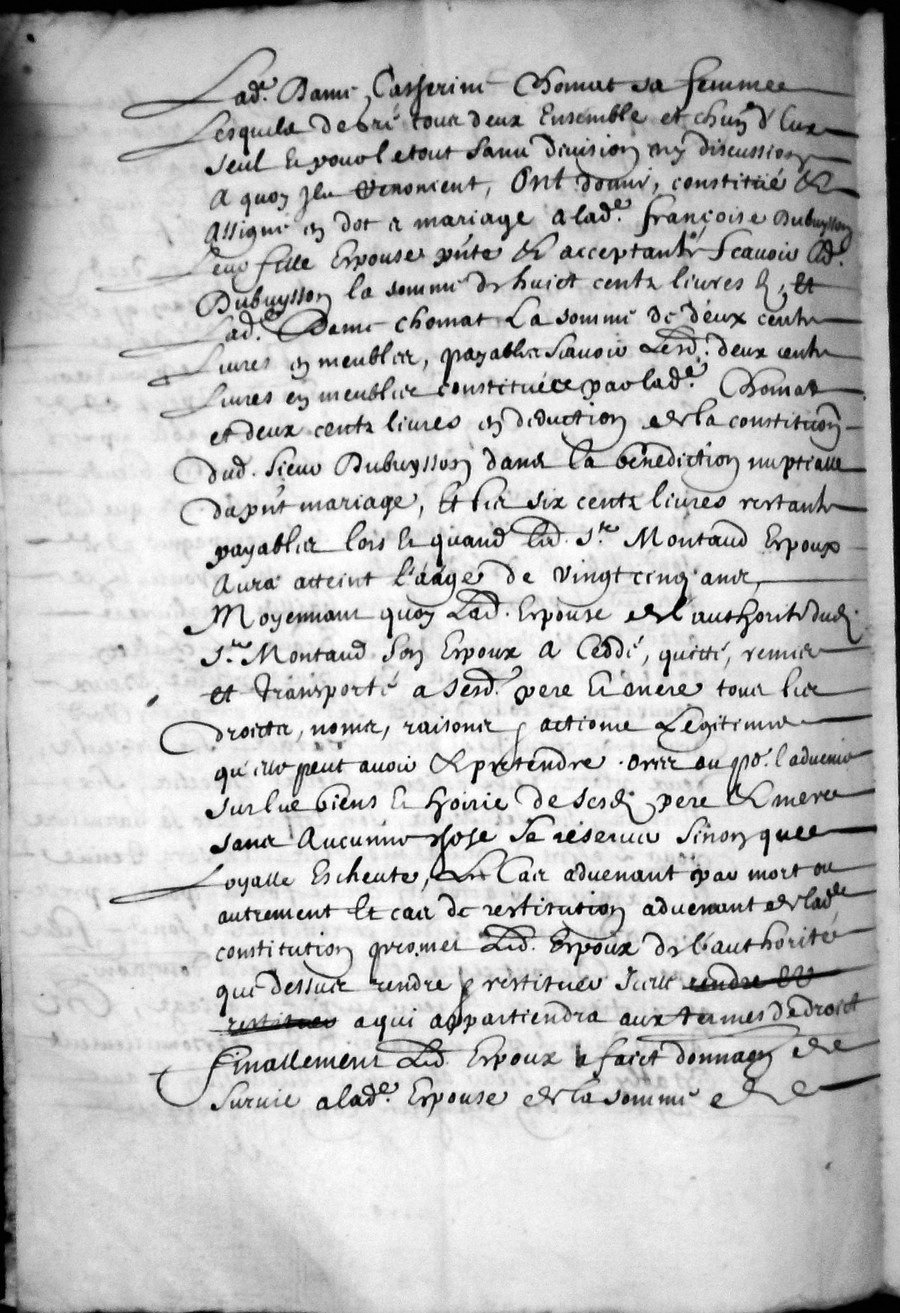 Lad.e Dame Catherine Chomat sa femme
Lesquels de gré tous deux Ensemble et chun d'Eux
seul et pour le tout sans division ny discussion
A quoy Ils Renoncent, Ont donné, constitué &
Assigné en dot et mariage a lad.e françoise Dubuysson
Leur fille Espouse pnte & acceptante, Scavoir led.
Dubuysson la somme de huict cents livres, et
Lad.e Dame chomat La somme de deux cents
Livres en meubles, payables scavoir Lesd. deux cents
Livres en meubles constituées par lad.e Chomat
et deux cents livres en déduction de la constituon
dud. Sieur Dubuysson dans la bénédiction nuptialle
du pnt mariage, Et les six cents livres restants
payables lors et quand led. S.r Montaud Espoux
Aura atteint l'aage de vingt cinq ans,
Moyennant quoy Lad. Espouse de l'authorité dud.
S.r Montaud son Espoux A Ceddé, quitté, remis
et Transporté a sesd. pere et mere tous les
droicts, noms, raisons, actions Légitime
qu'elle peut avoir & prétendre ores ou po.r l'advenir
sur les biens et hoirie de sesd. pere & mere
sans Aucune chose se réserver Sinon que
Loyalle Escheute, Le Cas advenant par mort ou
autrement Et cas de restitution advenant de lad.e
constitution promet Led. Espoux de l'authorité
que dessus rendre & restituer Icelle rendre &
restituer a qui appartiendra aux termes de droict
finallement Led. Espoux a faict donnaon de
survie a lad.e Espouse de la somme de